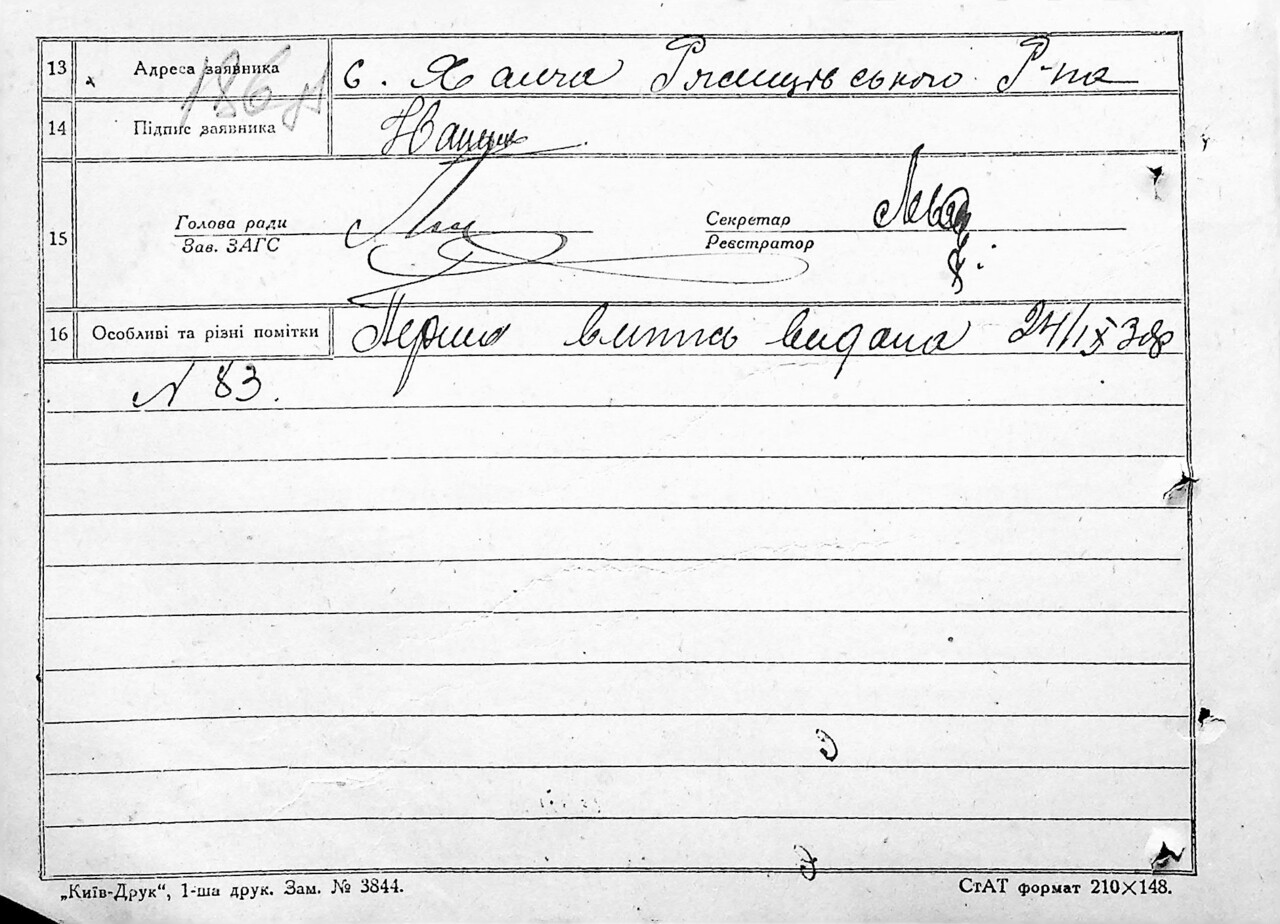 13 Адреса заявника с. Халча Ржищівського Р-на
14 Підпис заявника
15 Голова ради Секретар
Зав. ЗАГС Реєстратор
16 Особливі та різні помітки Перша випись видана 24/IX 38р
N 83.
„Київ-Друк“, 1-ша друк. Зам. № 3844. СтАТ формат 210×148.